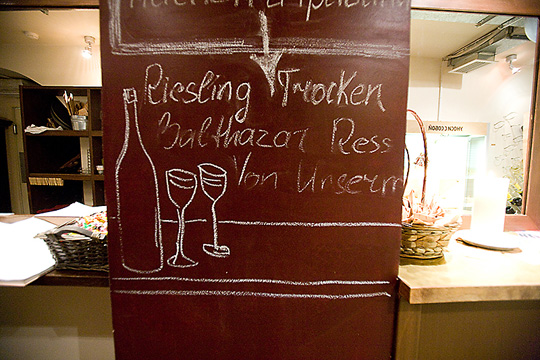 Riesling Trocken
Balthazar Ress
Von Unserm